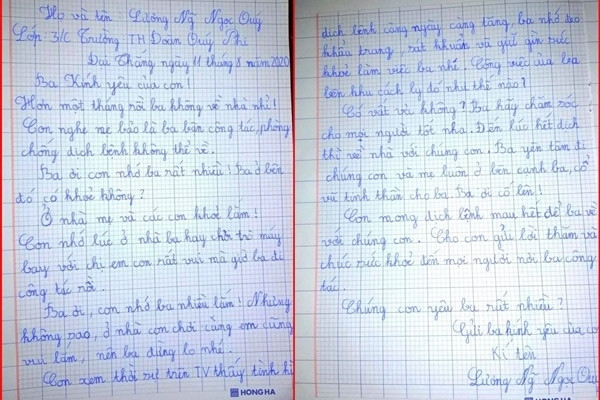 Họ và tên Lương Ng̃ Ngọc Quý
Lớp: 3/C Trường TH Đoàn Quý Phi
Đại Thắng ngày 11 tháng 8 năm 2020
Ba Kính yêu của con!
Hơn một tháng rồi ba không về nhà nhỉ!
Con nghe mẹ bảo là ba bận công tác, phòng
chống dịch bệnh không thể về.
Ba ơi con nhớ ba rất nhiều! Ba ở bên
đó có khoẻ không?
Ở nhà mẹ và các con khoẻ lắm!
Con nhớ lúc ở nhà ba hay chơi trò máy
bay với chị em con rất vui mà giờ ba đi
công tác rồi.
Ba ơi, con nhớ ba nhiều lắm! Nhưng
không sao, ở nhà con chơi cùng em cũng
vui lắm, nên ba đừng lo nhé.
Con xem thời sự trên TV thấy tình hì
HONG HA
dịch bệnh càng ngày càng tăng, ba nhớ đeo
khẩu trang, sát khuẩn và giữ gìn sức
khoẻ làm việc ba nhé. Công việc của ba
bên khu cách ly đó như thế nào?
Có vất vả không? Ba hãy chăm sóc
cho mọi người tốt nha. Đến lúc hết dịch
thì về nhà với chúng con. Ba yên tâm đi
chúng con và mẹ luôn ở bên cạnh ba, cổ
vũ tinh thần cho ba. Ba ơi cố lên!
Con mong dịch bệnh mau hết để ba về
với chúng con. Cho con gửi lời thăm và
chúc sức khoẻ đến mọi người nơi ba công
tác.
Chúng con yêu ba rất nhiều?
Gửi ba kính yêu của con
Kí tên
Lương Ng̃ Ngọc Quý
HONG HA